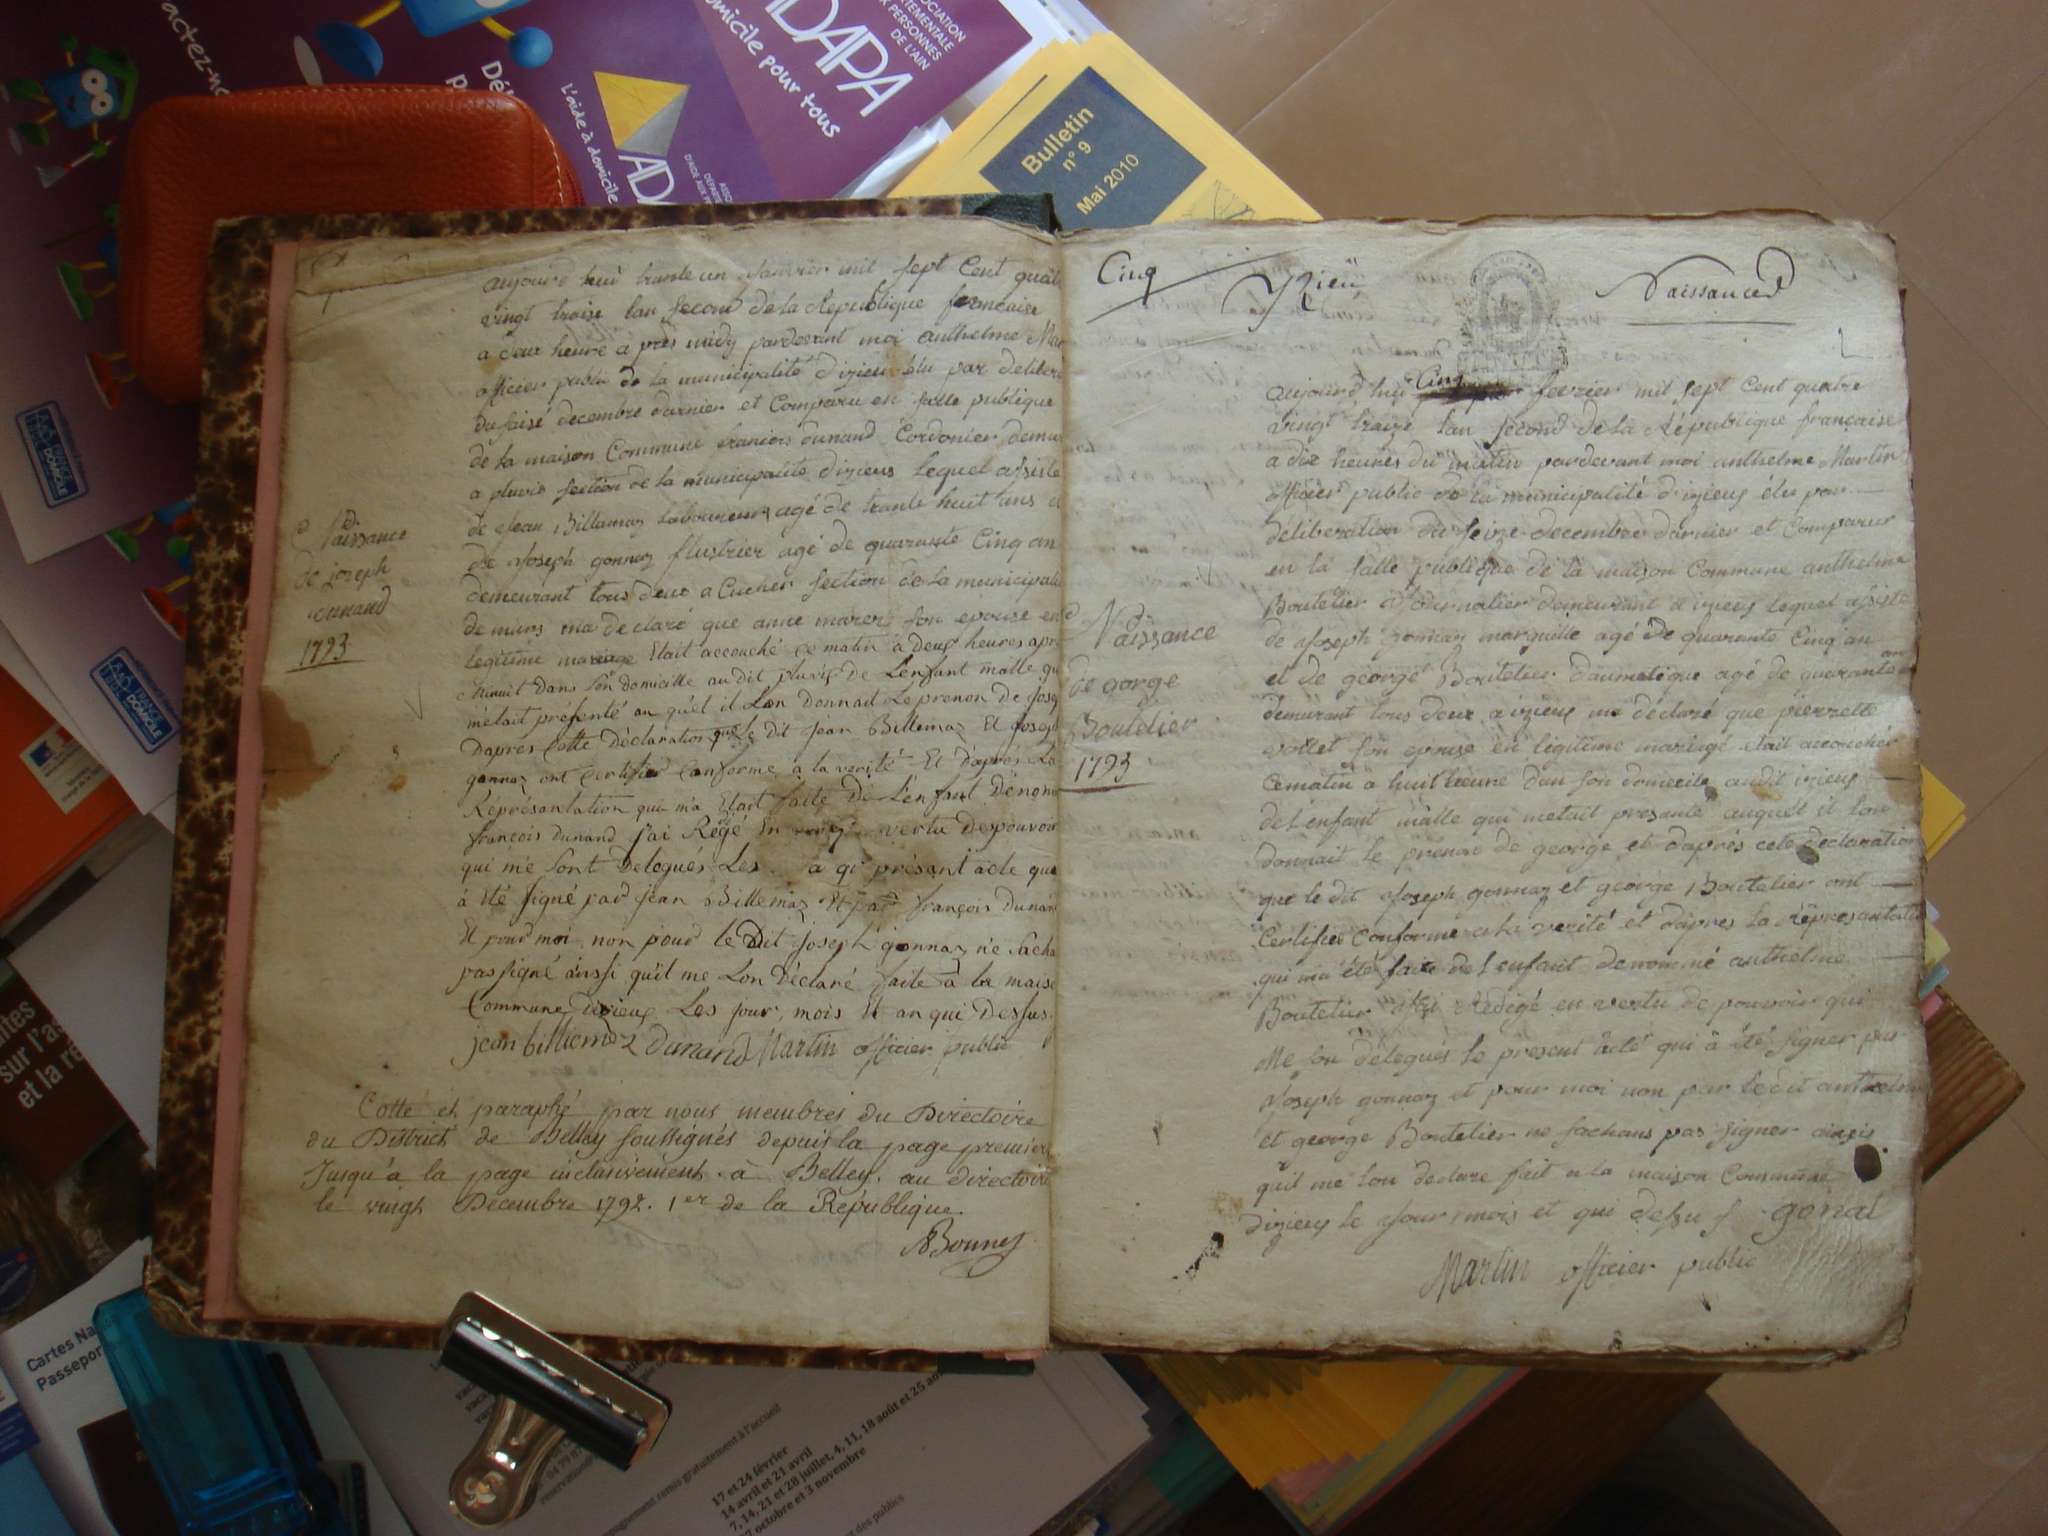 actez-n
Dé
p
L'aide à domicile
ADAPA
ASSOCIATION
DÉPARTEMENTALE
D'AIDE AUX PERSONNES
DE L'AIN
domicile pour tous
ADAPA
Bulletin
n° 9
Mai 2010
aujourd hui trante un Janvier mil sept Cent quat
vingt traise lan second de la République francaise
a deux heure a près midy pardevant moi anthelme Mar
officier public de la municipalité dizieu élu par delibera
du saisé decembre darnier et Comparu en salle publique
de la maison Commune francois dunand Cordonier demu
a pluvis section de la municipalité dizieus lequel assiste
de Jean Billamaz laboureur agé de trante huit ans et
de Joseph gonnaz flustrier agé de quarante Cinq an
demeurant tous deux a Cucher section de la municipali
de murs ma declaré que anne marer son epouse en
legitime mariage Etait accouché ce matin à deux heures apr
Minuit dans son domicille audit pluvis de L'enfant malle qu
m'etait présenté au quél il Lon donnait Le prenon de Jose
Dapres Cette Déclaration que le dit jean Billemaz Et Joseph
gonnaz ont Certifier Conforme à la verité Et D'aprés La
Répréséntation qui m'a Etait faite De L'enfant Dénom
françois Dunand j'ai Régé En vertu Des pouvoir
qui me sont Delegués Les a qi présent acte que
à été signé par jean Billemaz Et par françois Dunan
Et pour moi non pour le Dit Joseph gonnaz ne Sacha
pas signé ainssi qu'il me Lon Déclaré faite à la mais
Commune Dizieus Les jour, mois Et an qui Dessus
jean billiemaz Dunand Martin officier public
Naissance
de joseph
dunand
1793
Cotté et paraphé par nous membres du Directoire
du District de Belley soussignés depuis la page premier
Jusqu'a la page inclusivement à Belley au directoire
le vingt Decembre 1792. 1er de la République.
Cinq
Yzieü
Naissances
aujourd hui Cinq fevrier mil sept Cent quatre
vingt traize lan second de la République française
a dix heures du matin pardevant moi anthelme Martin
officier public de la municipalité d'izieus élu par
deliberation du seize decembre darnier et Comparu
en la salle publique de la maison Commune anthelme
Boutelier Journalier demeurant a izieus lequel assiste
de Joseph gonnaz marguille agé de quarante Cinq an
et de george Boutelier daumetique agé de quarante an
demurant tous deux a izieus ma déclaré que pierrette
vollet son epouse en légitime mariage etait accouchér
cematin a huit heure dan son domicile audit izieus
del enfant mâlle qui metait presanté auquel il lon
donnait le prenon de george et daprés cete declaration
que le dit Joseph gonnaz et george Boutelier ont
Certifier Conforme a la verité et daprés la répresantatio
qui ma été faite del enfant denommé anthelme
Boutelier Jai redigé en vertu de pouvoir qui
Me son délegués le present acté qui à été signer par
Joseph gonnaz et pour moi non par le dit anthelme
et george Boutelier ne sachans pas signer ainsis
quil me lon declare fait a la maison Commune
dizieus le jour mois et qui desu J gonat
Martin officier public
Naissance
de gorge
Boutelier
1793
Cartes Na
Passepor
17 et 24 février
14 avril et 21 avril
7, 14, 21 et 28 juillet, 4, 11, 18 août et 25 ao
octobre et 3 novembre